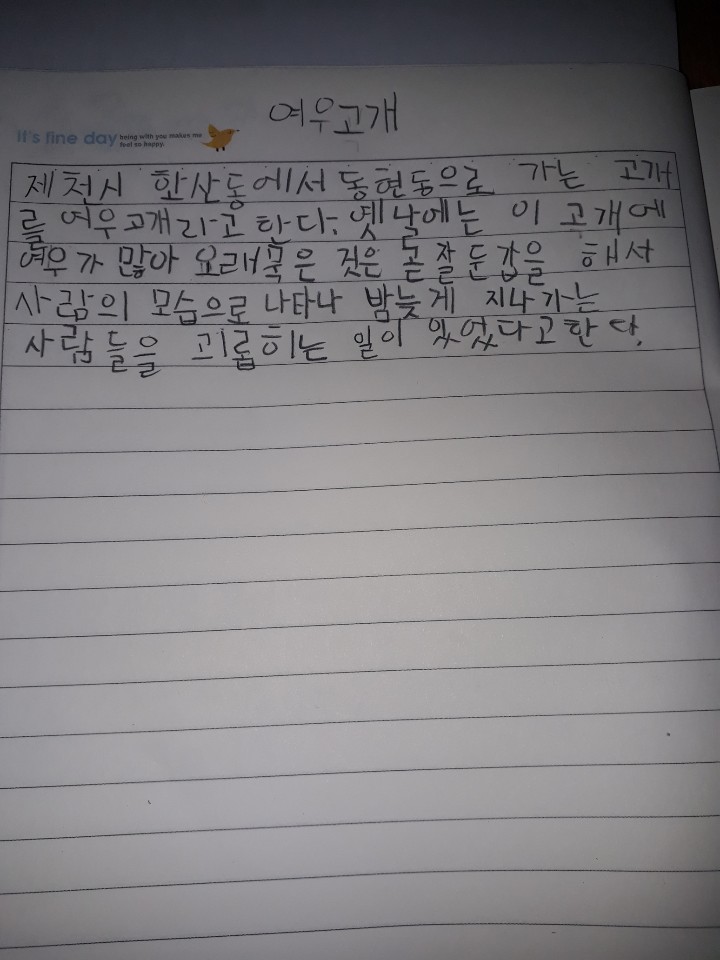 여우고개
it's fine day being with you makes me
feel so happy.
제천시 한산동에서 동현동으로 가는 고개
를 여우고개라고 한다. 옛날에는 이 고개에
여우가 많아 요래묵은 것은 곧잘둔갑을 해서
사람의 모습으로 나타나 밤늦게 지나가는
사람들을 괴롭히는 일이 있었다고한다.